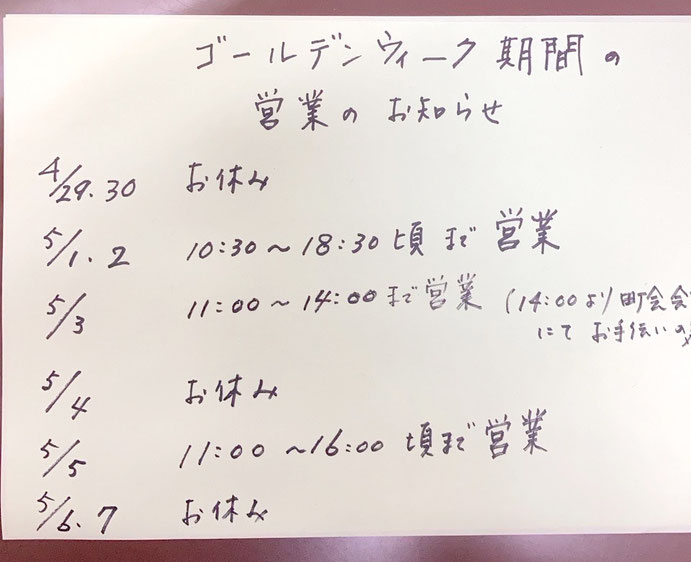 ゴールデンウィーク期間の
営業のお知らせ
4/29.30 お休み
5/1.2 10:30〜18:30頃まで営業
5/3 11:00〜14:00まで営業 (14:00より町会会
にてお手伝いの
5/4 お休み
5/5 11:00〜16:00頃まで営業
5/6.7 お休み